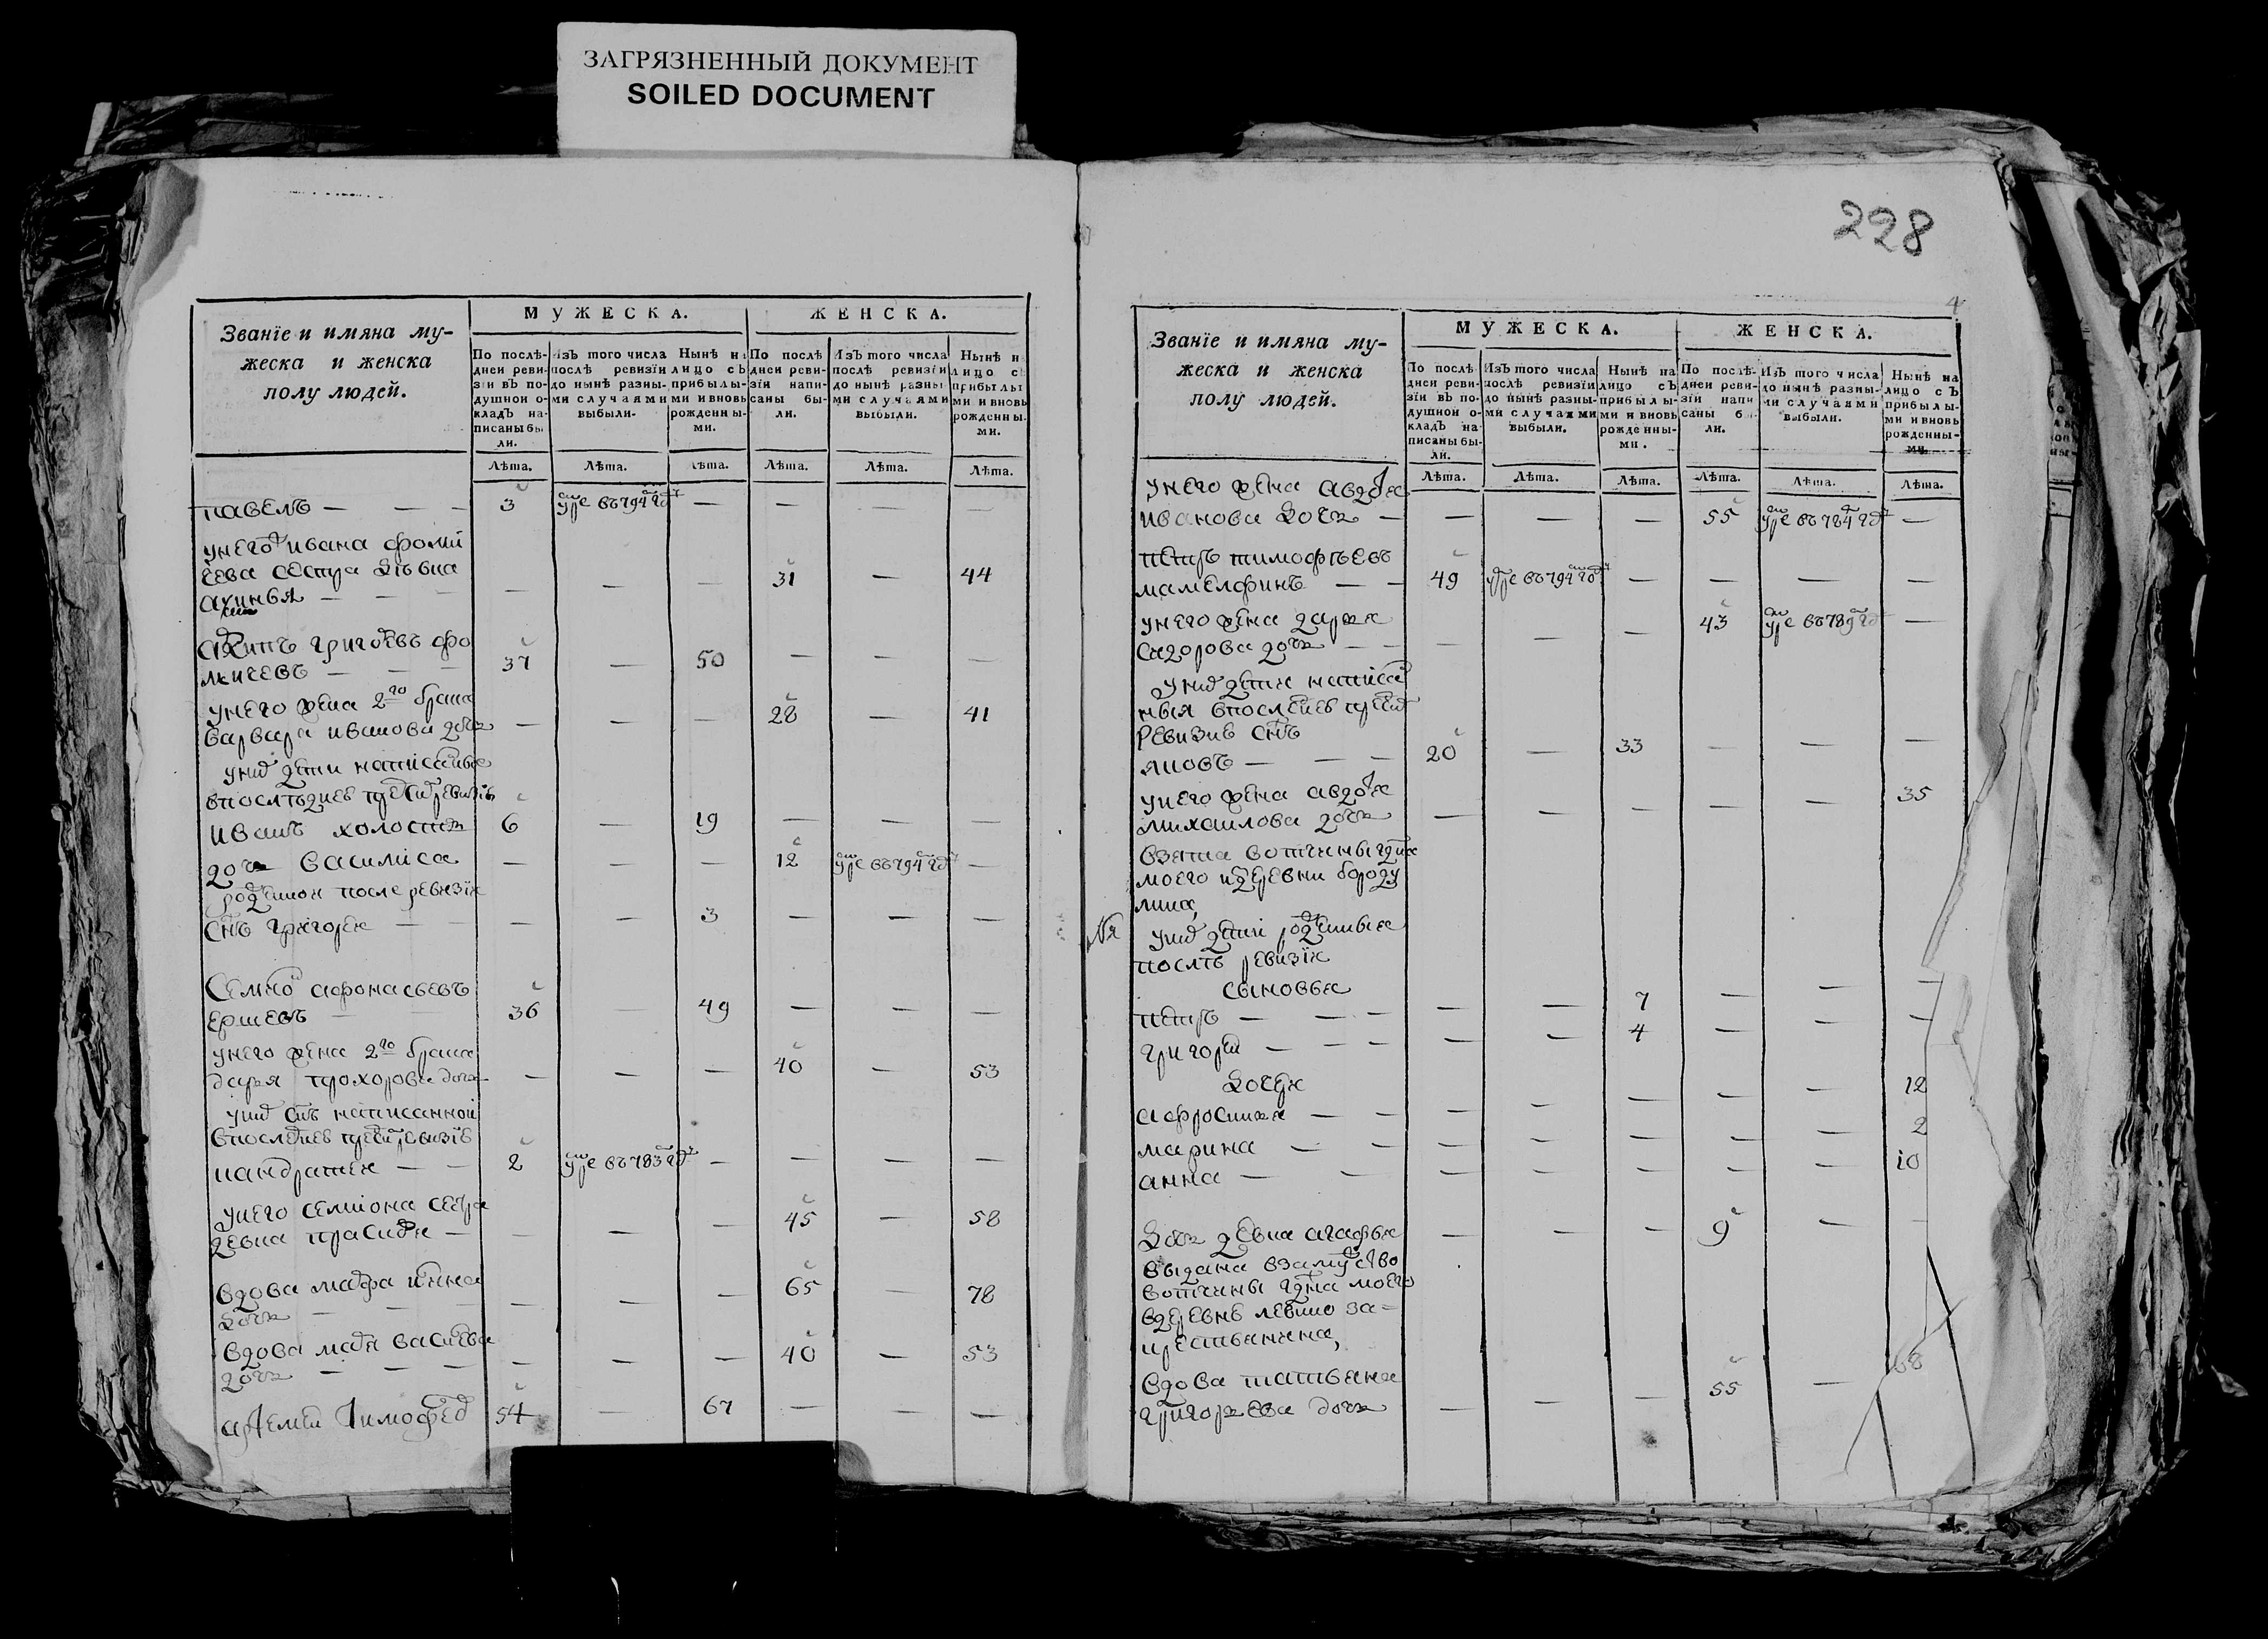 ЗАГРЯЗНЕННЫЙ ДОКУМЕНТ
SOILED DOCUMENT
228
Званїе и имяна му-
жеска и женска
полу людей.
МУЖЕСКА.
ЖЕНСКА.
По послѣ-
дней реви-
зїи въ по-
душной о-
кладъ на-
писаны бы
ли.
Изъ того числа
послѣ ревизїи
до нынѣ разны-
ми случаями
выбыли.
Нынѣ на
лицо съ
прибылы-
ми и вновь
рожденны-
ми.
По послѣ
дней реви-
зїи напи-
саны бы-
ли.
Изъ того числа
послѣ ревизїи
до нынѣ разны
ми случаями
выбыли.
Нынѣ н
лицо с
прибылы
ми и вновь
рожденны-
ми.
Лѣта. Лѣта. Лѣта. Лѣта. Лѣта. Лѣта.
павелъ — — 3 умре въ 794 год — — — —
унего ивана фоми
чева сестра дѣвка
— — — 31 — 44
григорьевъ фо
мичевъ — — 37 — 50 — — —
унего жена 2го брака
варвара иванова дочь — — — 28 — 41
уних дети написанные
впоследней пред ревизїи
иванъ холостъ 6 — 19 — — —
дочь василиса — — — 12 умре въ 794 год —
рожденной после ревизїи
снъ григореи — — — — 3 — — —
Семион афонасьевъ
ершевъ — 36 — 49 — — —
унего жена 2го брака
дарья прохорова дочь — — — 40 — 53
уних снъ написанной
впоследней пред ревизїи
кандратеи — — 2 умре въ 783 год — — — —
унего семиона сестра
девка — — — — 45 — 58
вдова марфа
дочь — — — — — — 65 — 78
вдова васильева
дочь — — — — — — 40 — 53
артемеи тимофеев 54 — 67 — — —
4
Званїе и имяна му-
жеска и женска
полу людей.
МУЖЕСКА.
ЖЕНСКА.
По послѣ-
дней реви-
зїи въ по-
душной о-
кладъ на-
писаны бы-
ли.
Изъ того числа
послѣ ревизїи
до нынѣ разны-
ми случаями
выбыли.
Нынѣ на
лицо съ
прибылы-
ми и вновь
рожденны-
ми.
По послѣ-
дней реви-
зїи напи
саны бы
ли.
Изъ того числа
до нынѣ разны-
ми случаями
выбыли.
Нынѣ на
лицо съ
прибылы-
ми и вновь
рожденны-
ми.
Лѣта. Лѣта. Лѣта. Лѣта. Лѣта. Лѣта.
унего жена авдотя
иванова дочь — — — — 55 умре въ 784 год —
петръ тимофѣевъ
мамелфинъ — — 49 умре въ 794 год — — — —
унего жена дарья
сидорова дочь — — — — — 43 умре въ 789 год —
уних дети написан
ныя впоследней пред
ревизїи снъ
яковъ — — — 20 — 33 — — —
унего жена авдотя
михаилова дочь — — — — — 35
взята вотчины гдна
моего издеревни бороду
лина,
уних дети рожденныя
послѣ ревизїи
сыновья
петръ — — — — — 7 — — —
григореи — — — — — 4 — — —
дочери
афросинья — — — — — — — 12
марина — — — — — — — 2
анна — — — — — — — 10
дочь девка агафья — — — 9 — —
выдана взамужство
вотчины гдна моего
вдеревне левино за-
крестьянина,
вдова татьяна
григорьева дочь — — — 55 — 68